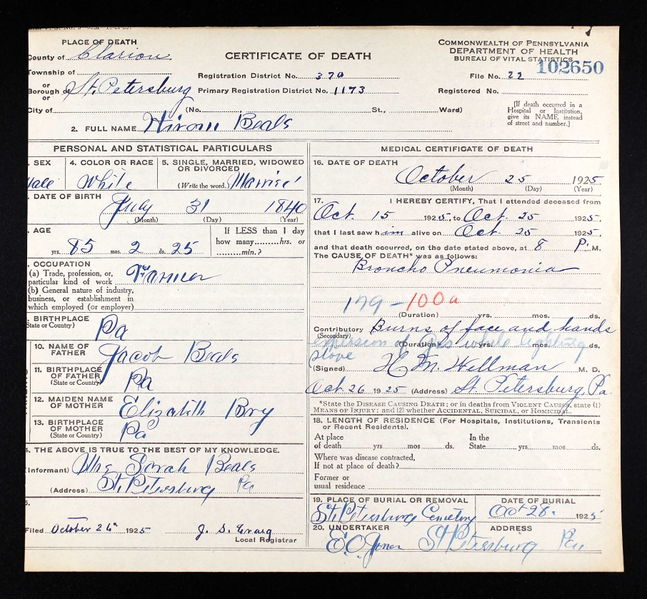 PLACE OF DEATH
County of Clarion
Township of
or
Borough of St. Petersburg
or
City of
CERTIFICATE OF DEATH
Registration District No. 370
Primary Registration District No. 1173
(No. St., Ward)
COMMONWEALTH OF PENNSYLVANIA
DEPARTMENT OF HEALTH
BUREAU OF VITAL STATISTICS
File No. 22 102650
Registered No.
[If death occurred in a
Hospital or Institution,
give its NAME instead
of street and number.]
2. FULL NAME Hiram Beals
PERSONAL AND STATISTICAL PARTICULARS
SEX
Male
4. COLOR OR RACE
White
5. SINGLE, MARRIED, WIDOWED
OR DIVORCED
(Write the word.) Married
DATE OF BIRTH
July 31 1840
(Month) (Day) (Year)
AGE
yrs. 85 mos. 2 ds. 25
If LESS than 1 day
how many hrs. or
min.?
OCCUPATION
(a) Trade, profession, or
particular kind of work Farmer
(b) General nature of industry,
business, or establishment in
which employed (or employer)
BIRTHPLACE
State or Country) Pa
10. NAME OF
FATHER Jacob Beals
11. BIRTHPLACE
OF FATHER
(State or Country) Pa
12. MAIDEN NAME
OF MOTHER Elizabeth Bry
13. BIRTHPLACE
OF MOTHER
(State or Country) Pa
THE ABOVE IS TRUE TO THE BEST OF MY KNOWLEDGE.
(Informant) Mrs Sarah Beals
(Address) St. Petersburg Pa
Filed October 26th 1925 J. S. Craig
Local Registrar
MEDICAL CERTIFICATE OF DEATH
16. DATE OF DEATH
October 25 1925
(Month) (Day) (Year)
17. I HEREBY CERTIFY, That I attended deceased from
Oct. 15 1925, to Oct 25 1925.
that I last saw him alive on Oct 25 1925.
and that death occurred, on the date stated above, at 8 P. M.
The CAUSE OF DEATH* was as follows:
Broncho Pneumonia
179-100a
(Duration) yrs. mos. ds.
Contributory Burns of face and hands
(Secondary)
(Duration) yrs. mos. ds.
explosion of gas while lighting
stove
(Signed) H M. Wellman M. D.
Oct. 26 1925 (Address) St. Petersburg, Pa.
*State the DISEASE CAUSING DEATH; or in deaths from VIOLENT CAUSES, state (1)
MEANS OF INJURY; and (2) whether ACCIDENTAL, SUICIDAL, or HOMICIDAL.
18. LENGTH OF RESIDENCE (For Hospitals, Institutions, Transients
or Recent Residents).
At place
of death yrs. mos. ds.
In the
State yrs. mos. ds.
Where was disease contracted,
If not at place of death?
Former or
usual residence
19. PLACE OF BURIAL OR REMOVAL
St. Petersburg Cemetery
DATE OF BURIAL
Oct-28. 1925
20. UNDERTAKER
E.O. Jones
ADDRESS
St Petersburg Pa